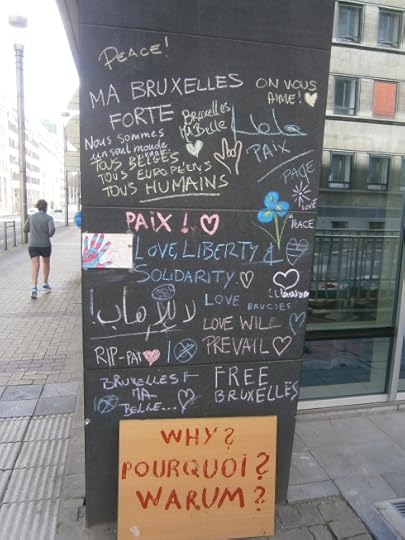 PEACE!
MA BRUXELLES
FORTE
ON VOUS
AIME!
Bruxelles
Ma Belle
Nous sommes
un seul monde
TOUS BELGES
TOUS EUROPÉENS
TOUS HUMAINS
PAIX
PEACE
PAIX!
LOVE, LIBERTY &
SOLIDARITY.
لا للإرهاب!
LOVE
LOVE WILL
PREVAIL
RIP-PAY
BRUXELLES
MA
BELLE...
FREE
BRUXELLES
WHY?
POURQUOI?
WARUM?